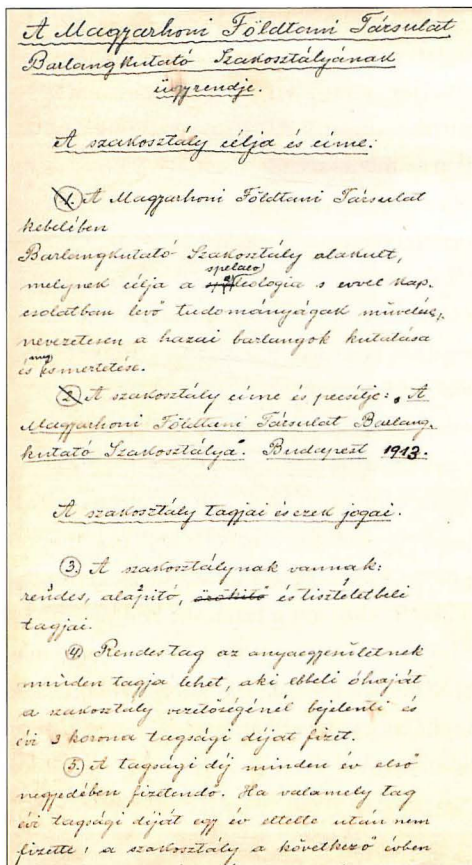 A Magyarhoni Földtani Társulat
Barlangkutató Szakosztályának
ügyrendje.
A szakosztály célja és címe:
1. A Magyarhoni Földtani Társulat
kebelében
Barlangkutató Szakosztály alakult,
spelaeo
melynek célja a logia s evvel kap-
csolatban levő tudományágak művelése,
nevezetesen a hazai barlangok kutatása
és ismertetése.
2. A szakosztály címe és pecsétje: „A
Magyarhoni Földtani Társulat Barlang-
kutató Szakosztálya". Budapest 1913.
A szakosztály tagjai és ezek jogai.
3. A szakosztálynak vannak:
rendes, alapító, örökítő és tiszteletbeli
tagjai.
4. Rendes tag az anyaegyesületnek
minden tagja lehet, aki ebbeli óhaját
a szakosztály vezetőségénél bejelenti és
évi 3 korona tagsági díjat fizet.
5. A tagsági díj minden év első
negyedében fizetendő. Ha valamely tag
évi tagsági díját egy év eltelte után nem
fizette, a szakosztály a következő évben